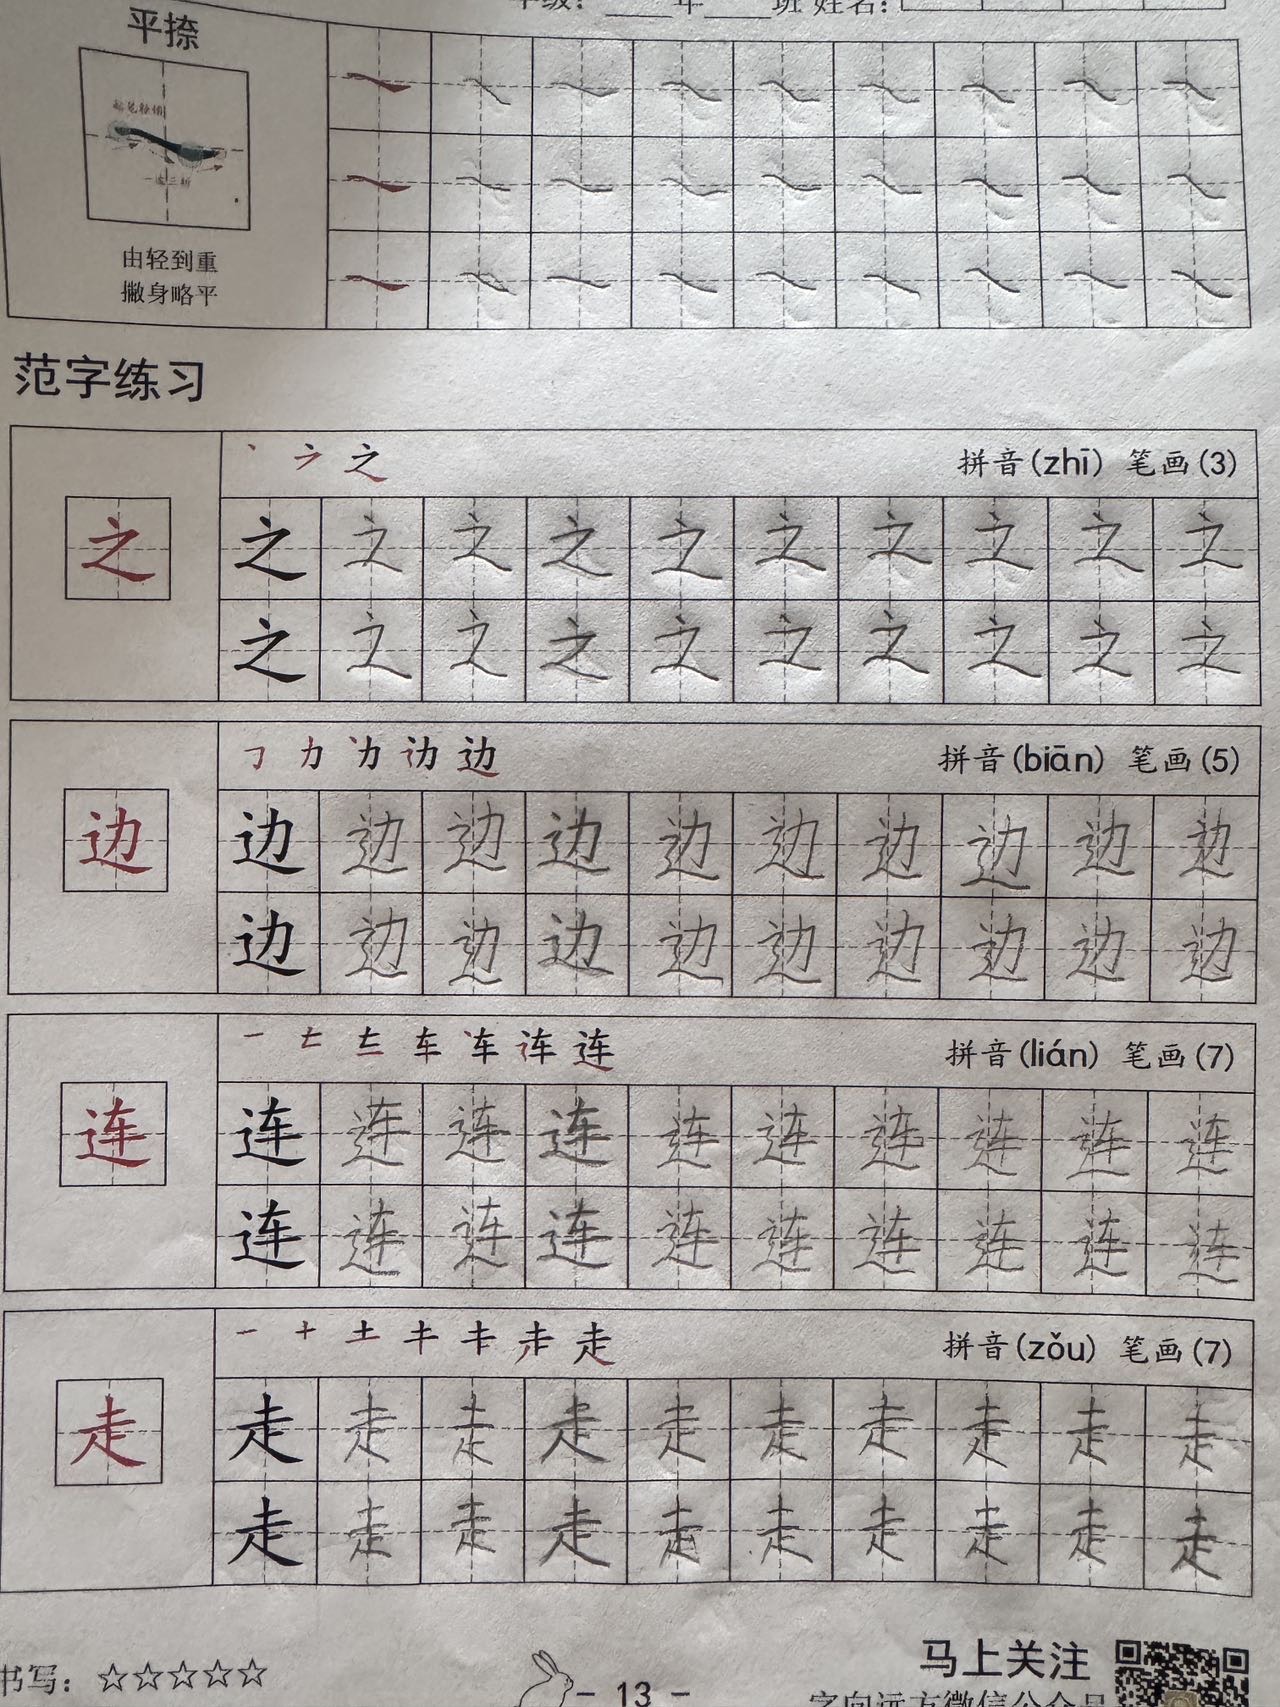 年级：____年____班 姓名：
平捺
一波三折
由轻到重
撇身略平
范字练习
之 拼音(zhī) 笔画(3)
之 之 之 之 之 之 之 之 之 之 之
之 之 之 之 之 之 之 之 之 之
边 拼音(biān) 笔画(5)
边 边 边 边 边 边 边 边 边 边 边
边 边 边 边 边 边 边 边 边 边
一 车 连 拼音(lián) 笔画(7)
连 连 连 连 连 连 连 连 连 连 连
连 连 连 连 连 连 连 连 连 连
一 十 土 走 拼音(zǒu) 笔画(7)
走 走 走 走 走 走 走 走 走 走 走
走 走 走 走 走 走 走 走 走 走
书写：☆☆☆☆☆
- 13 -
马上关注
字向远方微信公众号